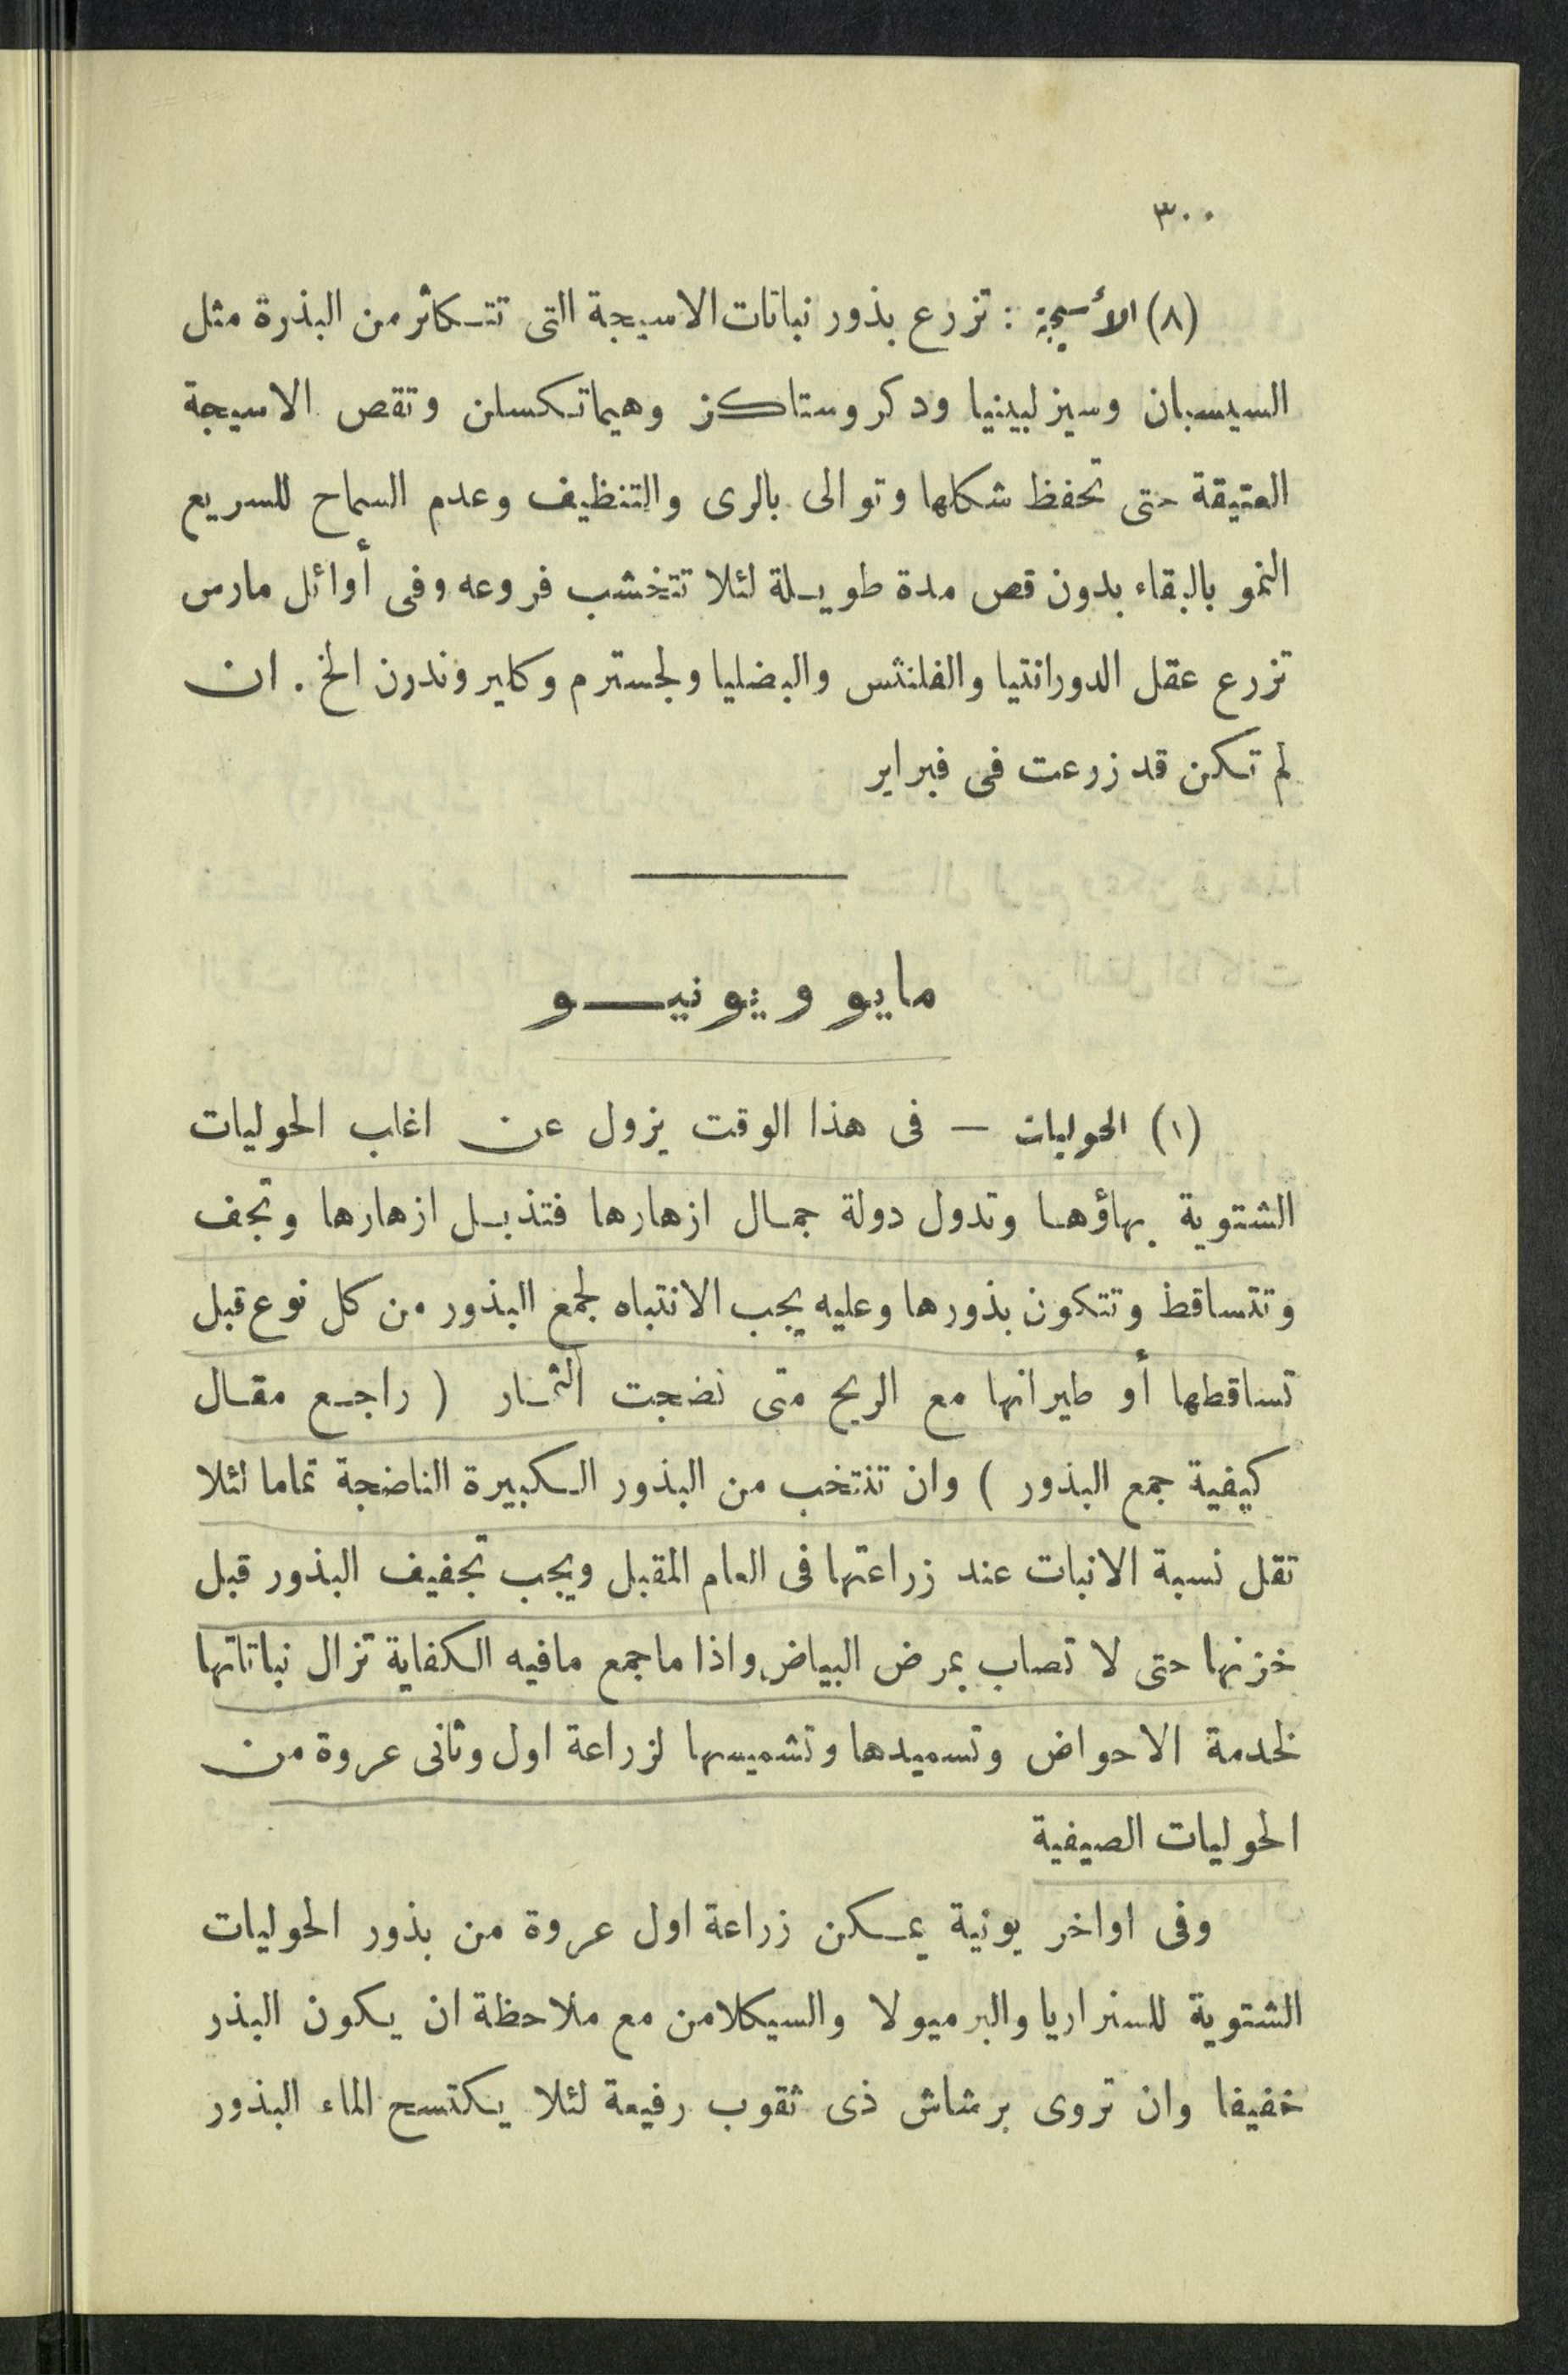 ٣٠٠
(٨) الأسيجة : تزرع بذور نباتات الاسيجة التى تتكاثر من البذرة مثل
السيسبان وسيزلبينيا ودكروستاكز وهيماتكسلن وتقص الاسيجة
العتيقة حتى تحفظ شكلها وتوالى بالرى والتنظيف وعدم السماح للسريع
النمو بالبقاء بدون قص مدة طويلة لئلا تتخشب فروعه وفى أوائل مارس
تزرع عقل الدورانتيا والفلنثس والبضليا ولجسترم وكليروندرن الخ . ان
لم تكن قد زرعت فى فبراير
مايو ويونيو
(١) الحوليات — فى هذا الوقت يزول عن اغلب الحوليات
الشتوية بهاؤها وتدول دولة جمال ازهارها فتذبل ازهارها وتجف
وتتساقط وتتكون بذورها وعليه يجب الانتباه لجمع البذور من كل نوع قبل
تساقطها أو طيرانها مع الريح متى نضجت الثمار ( راجع مقال
كيفية جمع البذور ) وان تنتخب من البذور الكبيرة الناضجة تماما لئلا
تقل نسبة الانبات عند زراعتها فى العام المقبل ويجب تجفيف البذور قبل
خزنها حتى لا تصاب بمرض البياض واذا ماجمع مافيه الكفاية تزال نباتاتها
لخدمة الاحواض وتسميدها وتشميسها لزراعة اول وثانى عروة من
الحوليات الصيفية
وفى اواخر يونية يمكن زراعة اول عروة من بذور الحوليات
الشتوية للسنراريا والبرميولا والسيكلامن مع ملاحظة ان يكون البذر
خفيفا وان تروى برشاش ذى ثقوب رفيعة لئلا يكتسح الماء البذور